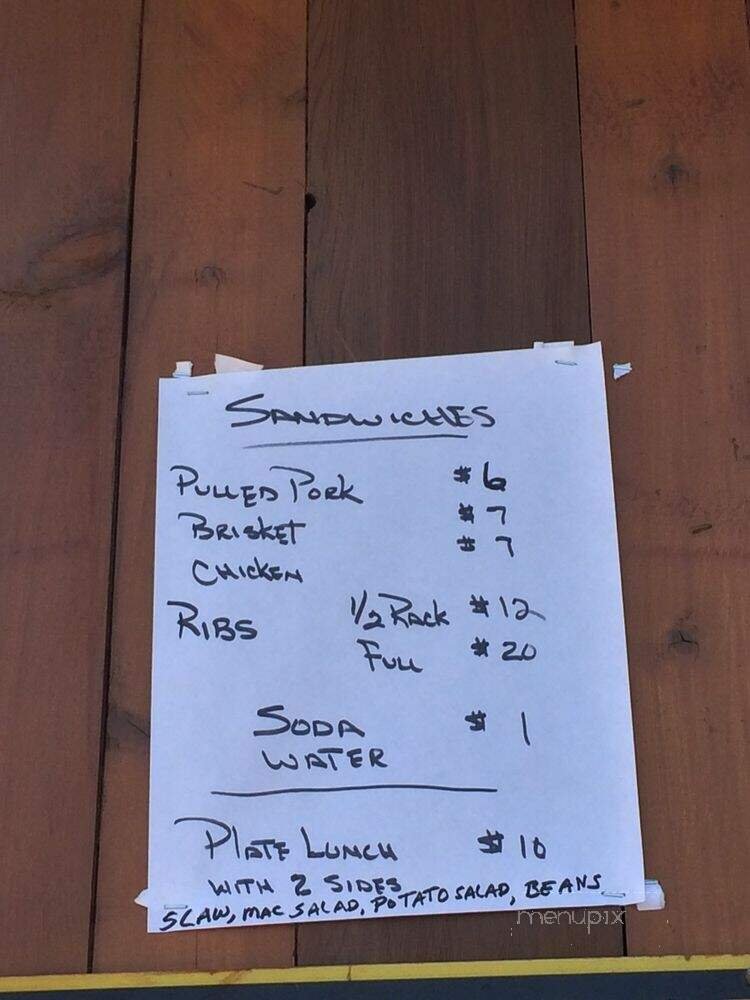 SANDWICHES
PULLED PORK $6
BRISKET $7
CHICKEN $7
RIBS 1/2 RACK $12
FULL $20
SODA $1
WATER
PLATE LUNCH $10
WITH 2 SIDES
SLAW, MAC SALAD, POTATO SALAD, BEANS
menupix